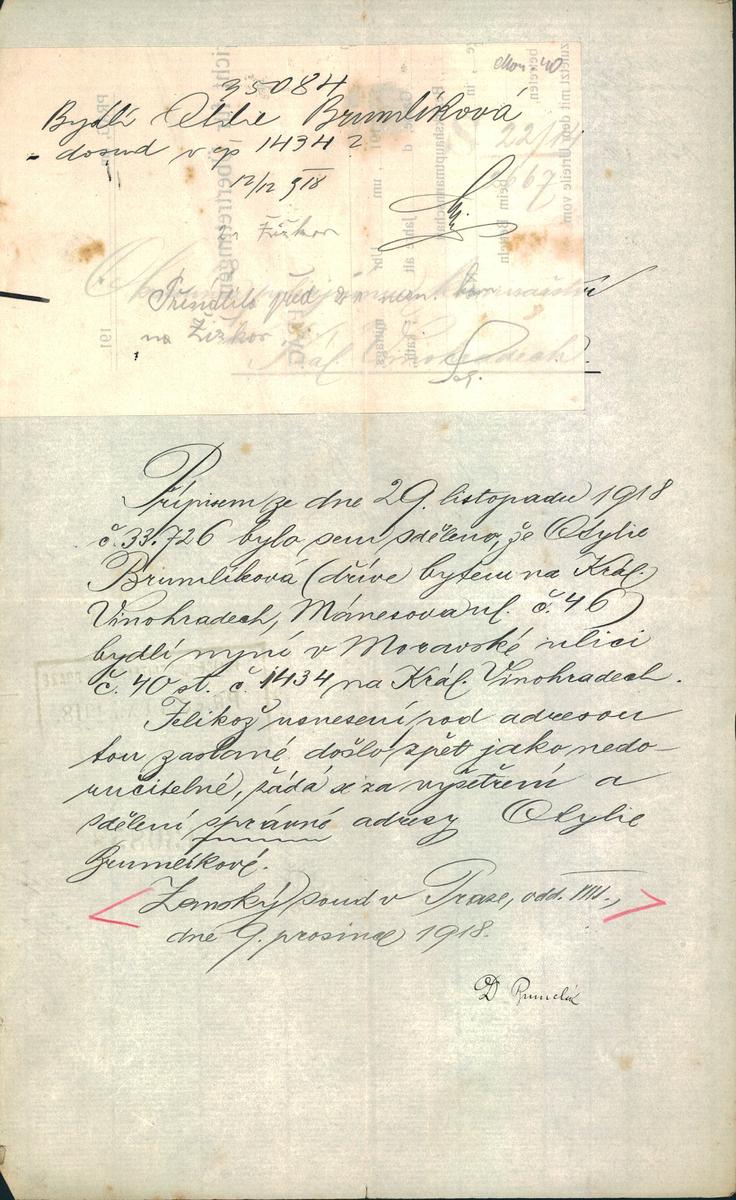 35084
Bydlí Otilie Brumlíková
dosud v čp 1434 ?
12/12 918
na Žižkov
22/14
2667
Přísluší před
na Žižkov
Král. Vinohradech.
Přípisem ze dne 29. listopadu 1918
č. 33.726 bylo sem sděleno, že Otylie
Brumlíková (dříve bytem na Král.
Vinohradech, Mánesova ul. č. 46)
bydlí nyní v Moravské ulici
č. 40 st. č. 1434 na Král. Vinohradech.
Jelikož usnesení pod adresou
tou zaslané došlo zpět jako nedo-
ručitelné, žádá se za vyšetření a
sdělení správné adresy Otylie
Brumlíkové.
Zemský soud v Praze, odd. VIII.,
dne 9. prosince 1918.